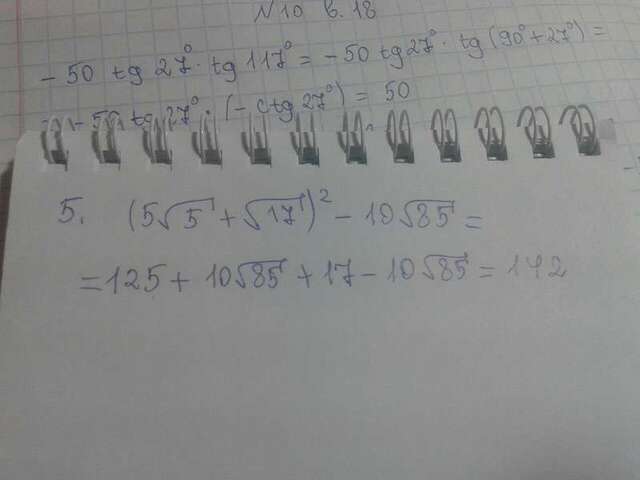 N10 в. 18
- 50 tg 27° · tg 117° = - 50 tg 27° · tg (90° + 27°) =
- 50 tg 27° · (- ctg 27°) = 50
5. (5√5 + √17)² - 10√85 =
= 125 + 10√85 + 17 - 10√85 = 142